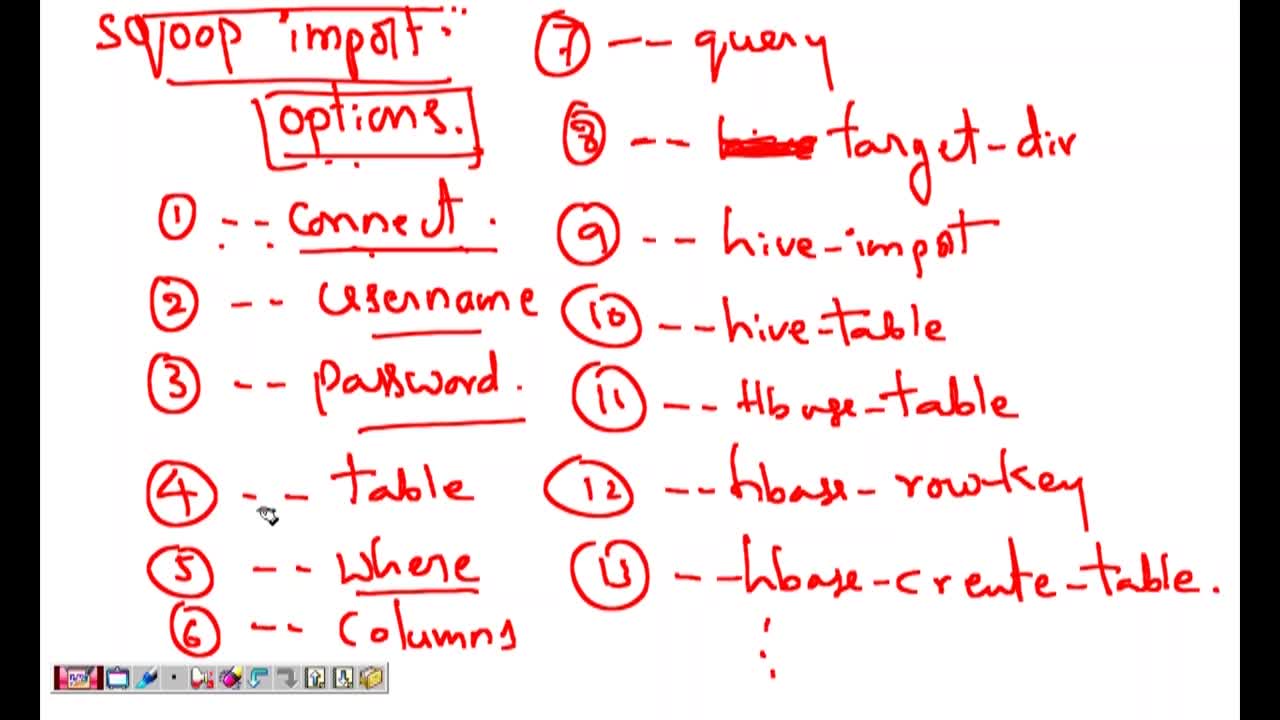 sqoop import
options.
① -- connect.
② -- username
③ -- password.
④ -- table
⑤ -- where
⑥ -- columns
⑦ -- query
⑧ -- target-dir
⑨ -- hive-import
⑩ -- hive-table
⑪ -- Hbase-table
⑫ -- hbase-row-key
⑬ -- hbase-create-table.